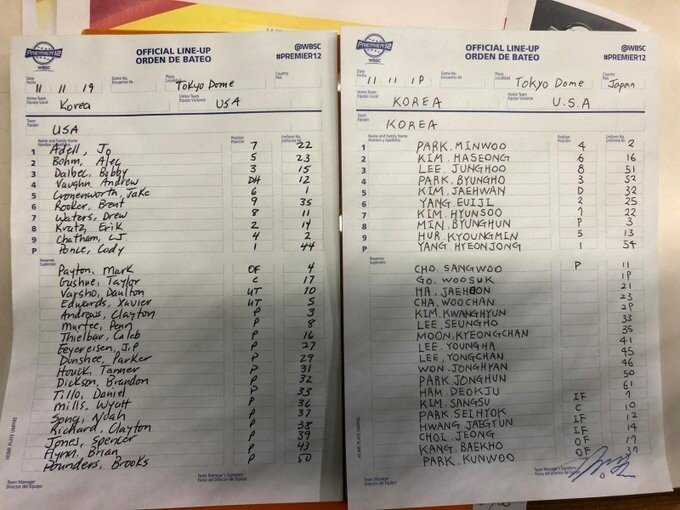 PREMIER12
WBSC
OFFICIAL LINE-UP
ORDEN DE BATEO
@WBSC
#PREMIER12
Date
Fecha
11 11 19
Game No.
Encuentro No.
Place
Localidad
Tokyo Dome
Country
País
Home Team
Equipo Local
Korea
Visitor Team
Equipo Visitante
USA
Team
Equipo
USA
Name and Family Name
Nombre y Apellidos
Position
Posición
Uniform No.
Uniforme No.
1 Adell, Jo 7 22
2 Bohm, Alec 5 23
3 Dalbec, Bobby 3 15
4 Vaughn, Andrew DH 12
5 Cronenworth, Jake 6 1
6 Rooker, Brent 9 35
7 Waters, Drew 8 11
8 Kratz, Erik 2 14
9 Chatham, CJ. 4 2
P Ponce, Cody 1 44
Reserves
Suplentes
Payton, Mark OF 4
Gushue, Taylor C 17
Varsho, Daulton UT 10
Edwards, Xavier UT 5
Andrews, Clayton P 3
Murfee, Penn P 8
Thielbar, Caleb P 16
Feyereisen, J.P P 27
Dunshee, Parker P 29
Houck, Tanner P 31
Dickson, Brandon P 32
Tillo, Daniel P 33
Mills, Wyatt P 36
Song, Noah P 37
Richard, Clayton P 38
Jones, Spencer P 39
Flynn, Brian P 43
Pounders, Brooks P 50
Team Manager
Director del Equipo
Team Manager's Signature
Firma del Director del Equipo
HOME PLATE UMPIRE
PREMIER12
WBSC
OFFICIAL LINE-UP
ORDEN DE BATEO
@WBSC
#PREMIER12
Date
Fecha
11 11 19
Game No.
Encuentro No.
Place
Localidad
Tokyo Dome
Country
País
Japan
Home Team
Equipo Local
KOREA
Visitor Team
Equipo Visitante
U.S.A
Team
Equipo
KOREA
Name and Family Name
Nombre y Apellidos
Position
Posición
Uniform No.
Uniforme No.
1 PARK. MINWOO 4 2
2 KIM. HASEONG 6 16
3 LEE. JUNGHOO 8 51
4 PARK. BYUNGHO 3 52
5 KIM. JAEHWAN D 32
6 YANG. EUIJI 2 25
7 KIM. HYUNSOO 7 22
8 MIN. BYUNGHUN P 3
9 HUR. KYOUNGMIN 5 13
P YANG. HYEONJONG 1 54
Reserves
Suplentes
CHO. SANGWOO P 11
GO. WOOSUK 19
HA. JAEHOON 21
CHA. WOOCHAN 23
KIM. KWANGHYUN 29
LEE. SEUNGHO 33
MOON. KYEONGCHAN 35
LEE. YOUNGHA 41
LEE. YONGCHAN 45
WON. JONGHYAN 46
PARK. JONGHUN 50
HAM. DEOKJU 61
KIM. SANGSU IF 7
PARK. SEHYOK C 10
HWANG. JAEGYUN IF 12
CHOI. JEONG IF 14
KANG. BAEKHO OF 17
PARK. KUNWOO OF 37
Team Manager
Director del Equipo
Team Manager's Signature
Firma del Director del Equipo
HOME PLATE UMPIRE